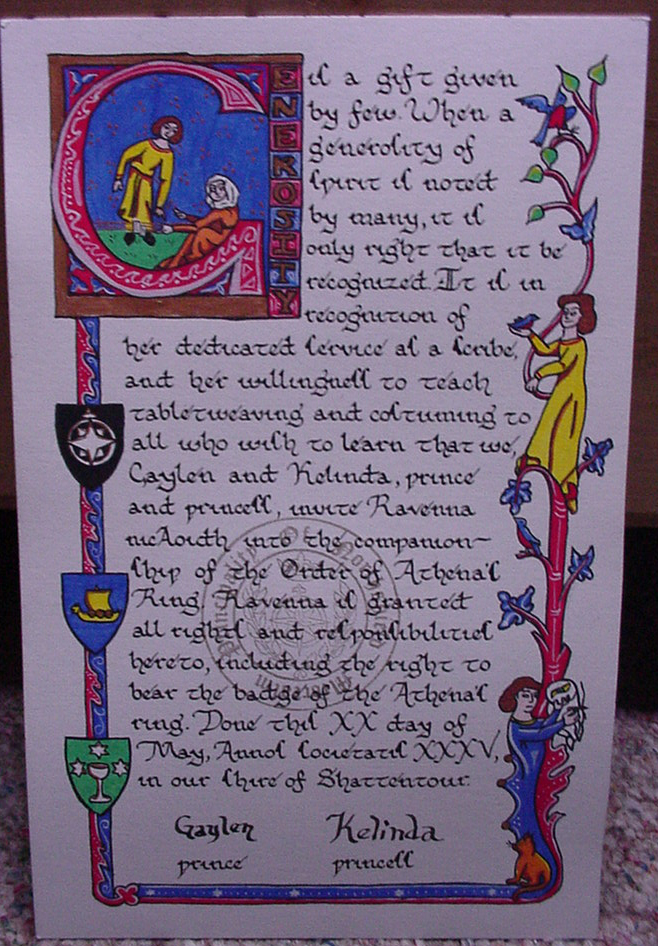 GENEROSITY is a gift given
by few. When a
generosity of
spirit is noted
by many, it is
only right that it be
recognized. It is in
recognition of
her dedicated service as a scribe,
and her willingness to teach
tabletweaving and costuming to
all who wish to learn that we,
Gaylen and Kelinda, prince
and princess, invite Ravenna
nicAoidh into the companion-
ship of the Order of Athena's
Ring. Ravenna is granted
all rights and responsibilities
hereto, including the right to
bear the badge of the Athena's
ring. Done this XX day of
May, Annos societatis XXXV,
in our shire of Shattentour.
Gaylen Kelinda
prince princess
Principality Of